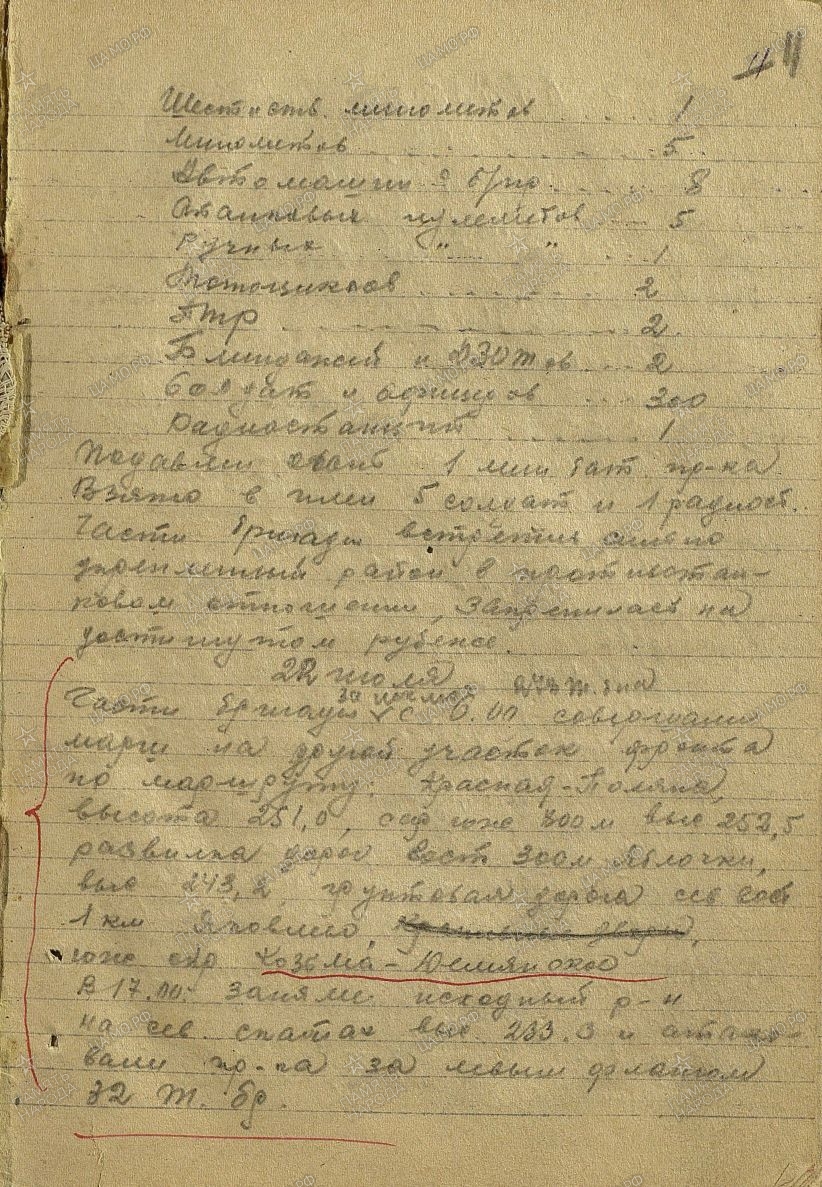 11
Шестиств. минометов . . . . . 1
Минометов . . . . . 5
Автомашин с б/пр. . . . 8
Станковых пулеметов . . . 5
Ручных " " . . . 1
Мотоциклов . . . . . 2
ПТР . . . . . 2
Блиндажей и ДЗОТов . . . 2
Солдат и офицеров . . . 300
Радиостанций . . . . . 1
Подавлен огонь 1 мин бат. пр-ка
Взято в плен 5 солдат и 1 радиост.
Части бригады встретив сильно
укрепленный район в противотан-
ковом отношении, закрепилась на
достигнутом рубеже.
22 июля
Части бригады с 6.00 совершали
марш на другой участок фронта
по маршруту: Красная-Поляна,
высота 251,0, окр южн 300м выс 252,5
развилка дорог вост 300м Яблочки,
выс 243,2 грунтовая дорога сев вост
1 км Яковлево
южн окр Козьма-Демянское
В 17.00 заняли исходный р-н
на сев. скатах выс 233.3 и атако-
вали пр-ка за левым флангом
32 т. бр.